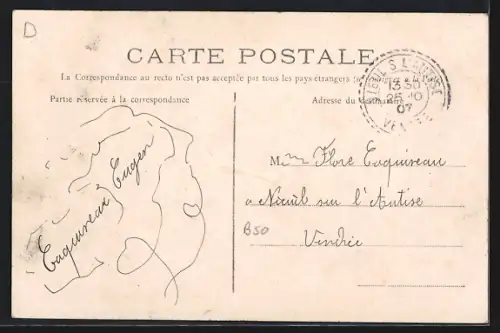 D
CARTE POSTALE
La Correspondance au recto n'est pas acceptée par tous les pays étrangers
Partie réservée à la correspondance
Adresse du destinataire
NIEUL S. L'AUTISE
13 30
25 10
07
VENDÉE
Eugen
Mme Flore
a Nieuil sur l'Autise
B50
Vendée